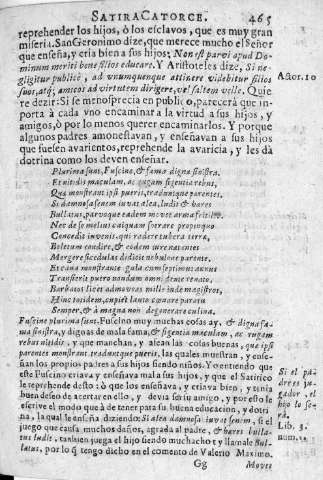 SATIRA CATORCE. 465
reprehender los hijos, ò los esclavos, que es muy gran
miseria. San Geronimo dize, que merece mucho el Señor
que enseña, y cria bien a sus hijos; Non est parvi apud Do-
minum meriti bene filios educare. Y Aristoteles dize, Si ne-
gligitur publicè, ad unumquemque attinere videbitur filios
suos, atq; amicos ad virtutem dirigere, vel saltem velle. Quie
re dezir: Si se menosprecia en publico, parecerà que im-
porta à cada vno encaminar a la virtud a sus hijos, y
amigos, ò por lo menos querer encaminarlos. Y porque
algunos padres amonestavan, y enseñavan a sus hijos
que fuessen avarientos, reprehende la avaricia, y les dà
dotrina como los deven enseñar.
Plurima sunt, Fuscino, & fama digna sinistra,
Et nitidis maculam, ac rugam figentia rebus,
Quæ monstrant ipsi pueris, traduntque parentes.
Si damnosa senem iuvat alea, ludit & hæres
Bullatus, parvoque eadem movet arma fritillo.
Nec de se melius cuiquam sperare propinquo
Concedit iuvenis, qui radere tubera terræ,
Boletum condire, & eodem iure natantes
Mergere ficedulas didicit nebulone parente,
Et cana monstrante gula cum septimus annus
Transierit puero nondum omni dente renato,
Barbatos licet admoveas mille inde magistros,
Hinc totidem, cupiet lauto cœnare paratu
Semper, & à magna non degenerare culina.
Fuscine plurima sunt. Fuscino muy muchas cosas ay, & digna fa-
ma sinistra, y dignas de mala fama, & figentia maculam, ac rugam
rebus nitidis, y que manchan, y afean las cosas buenas, quæ ipsi
parentes monstrant traduntque pueris, las quales muestran, y ense-
ñan los propios padres a sus hijos siendo niños. Yo entiendo que
este Fuscino criava y enseñava mal a sus hijos, y que el Satirico
le reprehende desto: ò que los enseñava, y criava bien, y tenia
buen deseo de acertar en ello, y devia ser su amigo, y por esto le
escrive el modo que à de tener para su buena educacion, y dotri
na, la qual le enseña diziendo: Si alea damnosa iuvat senem, si el
juego que causa muchos daños, agrada al padre, & hæres bulla-
tus ludit, tambien juega el hijo siendo muchacho: y llamale Bul-
latus, por lo q tengo dicho en el comento de Valerio Maximo.
Gg Moves
Si el pa-
dre es ju-
gador, el
hijo lo se-
rà.
Lib. 3.